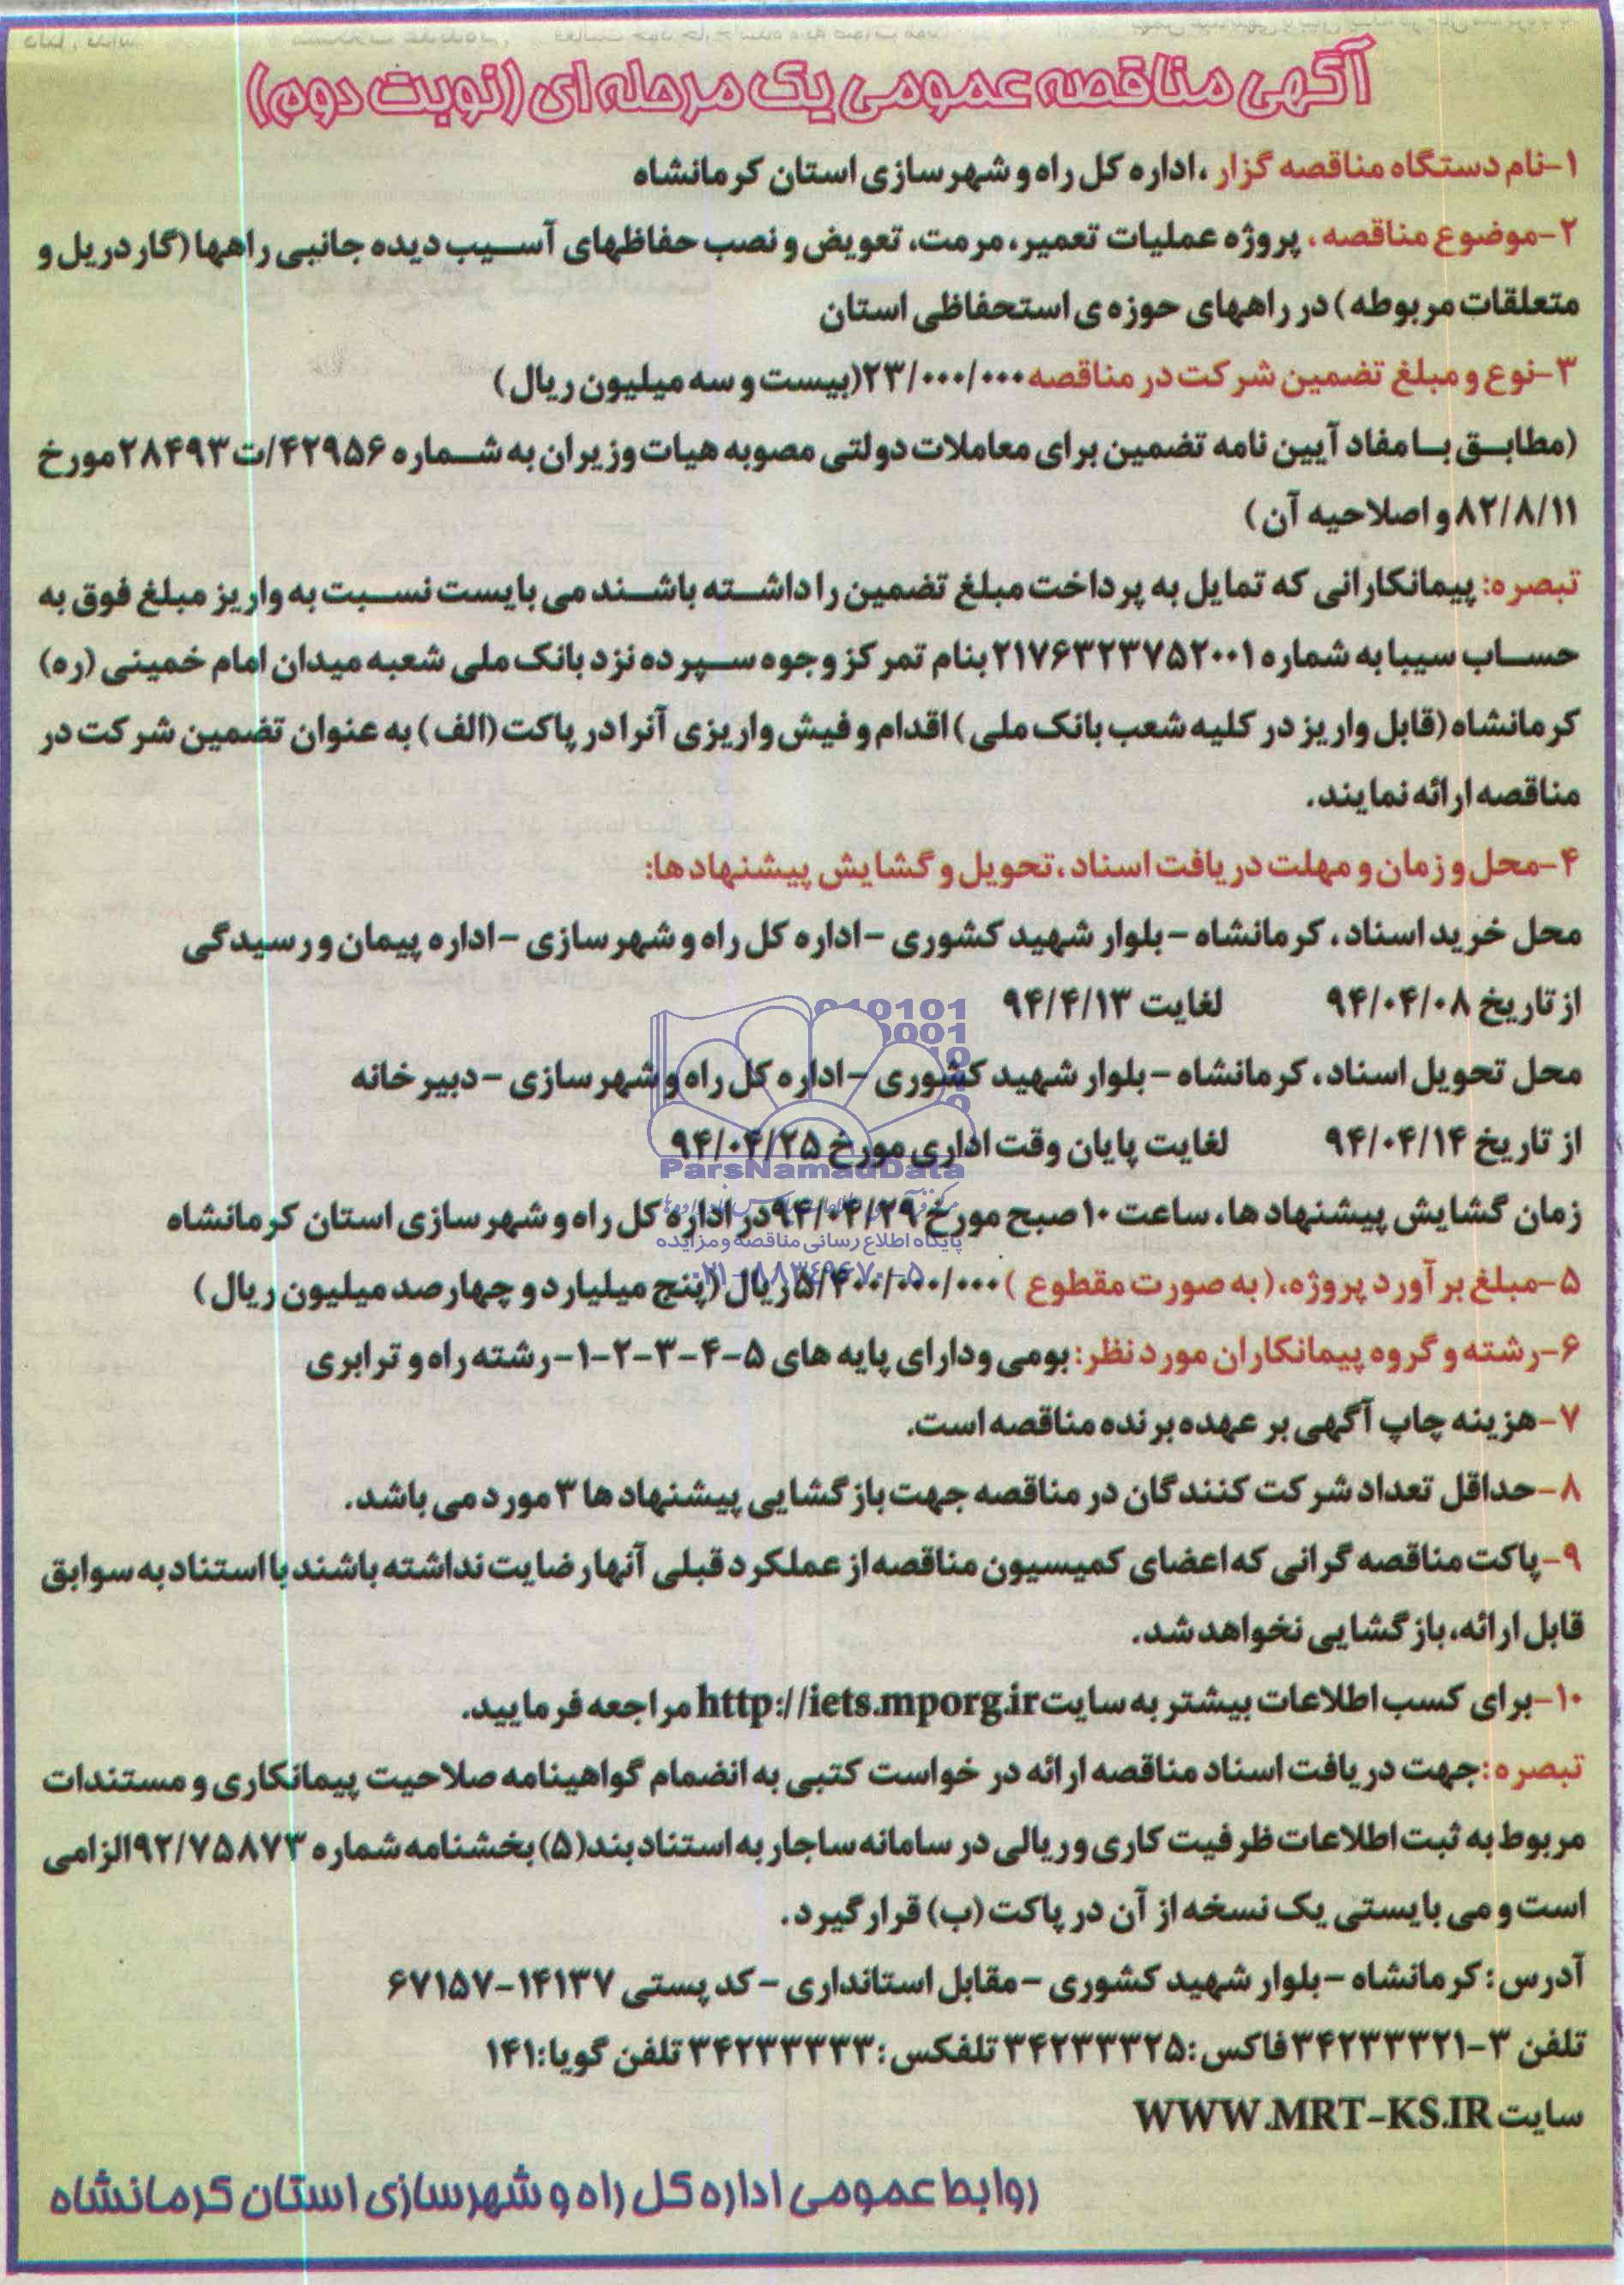 آگهی مناقصه عمومی یک مرحله ای (نوبت دوم)
۱-نام دستگاه مناقصه گزار ،اداره کل راه و شهرسازی استان کرمانشاه
۲-موضوع مناقصه ، پروژه عملیات تعمیر، مرمت، تعویض و نصب حفاظهای آسیب دیده جانبی راهها (گاردریل و
متعلقات مربوطه) در راههای حوزه ی استحفاظی استان
۳-نوع و مبلغ تضمین شرکت در مناقصه ۲۳/۰۰۰/۰۰۰(بیست و سه میلیون ریال)
(مطابق با مفاد آیین نامه تضمین برای معاملات دولتی مصوبه هیات وزیران به شماره ۴۲۹۵۶/ت۲۸۴۹۳مورخ
۸۲/۸/۱۱ و اصلاحیه آن)
تبصره: پیمانکارانی که تمایل به پرداخت مبلغ تضمین را داشته باشند می بایست نسبت به واریز مبلغ فوق به
حساب سیبا به شماره ۲۱۷۶۳۲۳۷۵۲۰۰۱ بنام تمرکز وجوه سپرده نزد بانک ملی شعبه میدان امام خمینی (ره)
کرمانشاه (قابل واریز در کلیه شعب بانک ملی) اقدام و فیش واریزی آنرا در پاکت (الف) به عنوان تضمین شرکت در
مناقصه ارائه نمایند.
۴-محل و زمان و مهلت دریافت اسناد ،تحویل و گشایش پیشنهادها:
محل خرید اسناد ، کرمانشاه -بلوار شهید کشوری -اداره کل راه و شهرسازی -اداره پیمان و رسیدگی
از تاریخ ۹۴/۰۴/۰۸ لغایت ۹۴/۴/۱۳
محل تحویل اسناد ، کرمانشاه -بلوار شهید کشوری -اداره کل راه و شهرسازی -دبیرخانه
از تاریخ ۹۴/۰۴/۱۴ لغایت پایان وقت اداری مورخ ۹۴/۰۴/۲۵
ParsNamadData
زمان گشایش پیشنهادها، ساعت ۱۰ صبح مورخ ۹۴/۰۴/۲۹ در اداره کل راه و شهرسازی استان کرمانشاه
پایگاه اطلاع رسانی مناقصه و مزایده
۰۲۱-۸۸۳۴۹۶۷۰-۵
۵-مبلغ برآورد پروژه، (به صورت مقطوع )۵/۴۰۰/۰۰۰/۰۰۰ ریال (پنج میلیارد و چهارصد میلیون ریال)
۶-رشته و گروه پیمانکاران مورد نظر: بومی و دارای پایه های ۵-۴-۳-۲-۱-رشته راه و ترابری
۷-هزینه چاپ آگهی بر عهده برنده مناقصه است.
۸-حداقل تعداد شرکت کنندگان در مناقصه جهت بازگشایی پیشنهادها ۳ مورد می باشد.
۹-پاکت مناقصه گرانی که اعضای کمیسیون مناقصه از عملکرد قبلی آنها رضایت نداشته باشند با استناد به سوابق
قابل ارائه، بازگشایی نخواهد شد.
۱۰-برای کسب اطلاعات بیشتر به سایت http://iets.mporg.ir مراجعه فرمایید.
تبصره :جهت دریافت اسناد مناقصه ارائه درخواست کتبی به انضمام گواهینامه صلاحیت پیمانکاری و مستندات
مربوط به ثبت اطلاعات ظرفیت کاری و ریالی در سامانه ساجار به استناد بند(۵) بخشنامه شماره ۹۲/۷۵۸۷۳الزامی
است و می بایستی یک نسخه از آن در پاکت (ب) قرار گیرد.
آدرس : کرمانشاه -بلوار شهید کشوری -مقابل استانداری -کد پستی ۱۴۱۳۷-۶۷۱۵۷
تلفن ۳-۳۴۲۳۳۳۲۱فاکس :۳۴۲۳۳۳۲۵ تلفکس :۳۴۲۳۳۳۳۳ تلفن گویا:۱۴۱
سایت WWW.MRT-KS.IR
روابط عمومی اداره کل راه و شهرسازی استان کرمانشاه